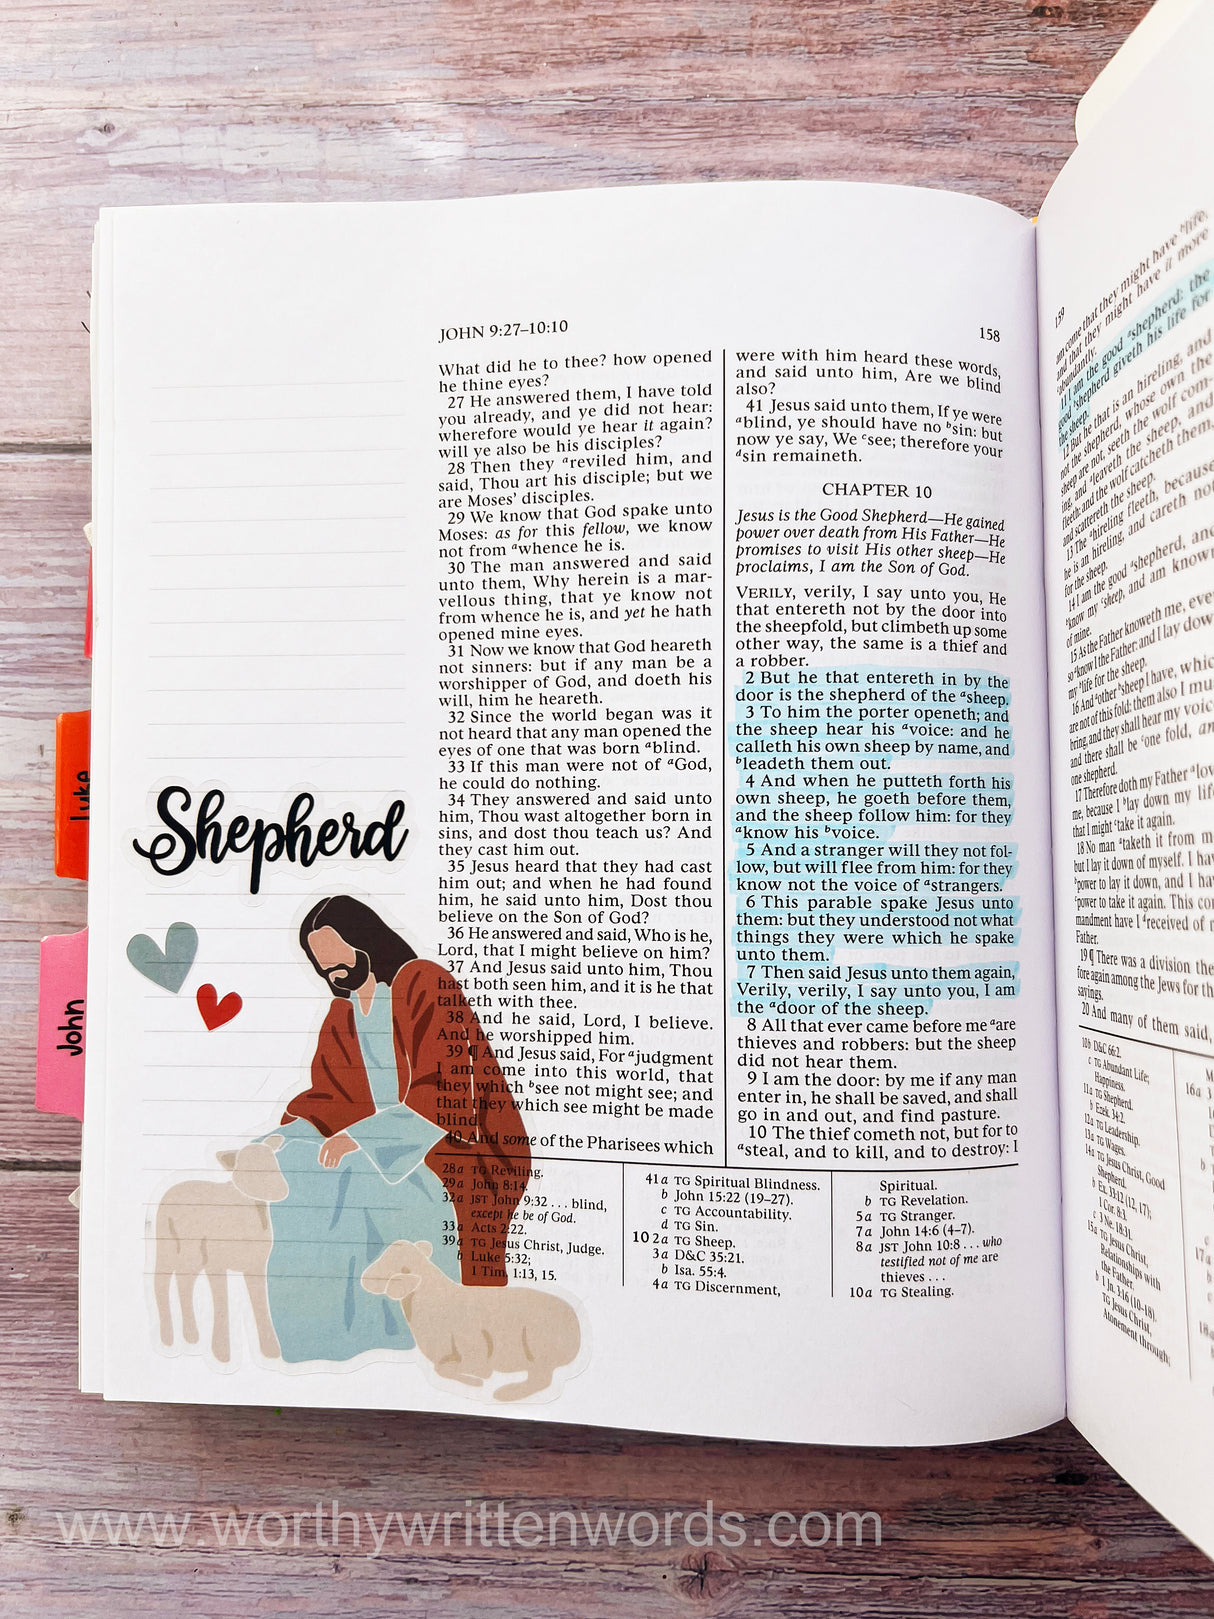 JOHN 9:27–10:10
158
What did he to thee? how opened
he thine eyes?
27 He answered them, I have told
you already, and ye did not hear:
wherefore would ye hear it again?
will ye also be his disciples?
28 Then they areviled him, and
said, Thou art his disciple; but we
are Moses' disciples.
29 We know that God spake unto
Moses: as for this fellow, we know
not from awhence he is.
30 The man answered and said
unto them, Why herein is a mar-
vellous thing, that ye know not
from whence he is, and yet he hath
opened mine eyes.
31 Now we know that God heareth
not sinners: but if any man be a
worshipper of God, and doeth his
will, him he heareth.
32 Since the world began was it
not heard that any man opened the
eyes of one that was born ablind.
33 If this man were not of aGod,
he could do nothing.
34 They answered and said unto
him, Thou wast altogether born in
sins, and dost thou teach us? And
they cast him out.
35 Jesus heard that they had cast
him out; and when he had found
him, he said unto him, Dost thou
believe on the Son of God?
36 He answered and said, Who is he,
Lord, that I might believe on him?
37 And Jesus said unto him, Thou
hast both seen him, and it is he that
talketh with thee.
38 And he said, Lord, I believe.
And he worshipped him.
39 ¶ And Jesus said, For ajudgment
I am come into this world, that
they which bsee not might see; and
that they which see might be made
blind.
40 And some of the Pharisees which
were with him heard these words,
and said unto him, Are we blind
also?
41 Jesus said unto them, If ye were
ablind, ye should have no bsin: but
now ye say, We csee; therefore your
dsin remaineth.
CHAPTER 10
Jesus is the Good Shepherd—He gained
power over death from His Father—He
promises to visit His other sheep—He
proclaims, I am the Son of God.
VERILY, verily, I say unto you, He
that entereth not by the door into
the sheepfold, but climbeth up some
other way, the same is a thief and
a robber.
2 But he that entereth in by the
door is the shepherd of the asheep.
3 To him the porter openeth; and
the sheep hear his avoice: and he
calleth his own sheep by name, and
bleadeth them out.
4 And when he putteth forth his
own sheep, he goeth before them,
and the sheep follow him: for they
aknow his bvoice.
5 And a stranger will they not fol-
low, but will flee from him: for they
know not the voice of astrangers.
6 This parable spake Jesus unto
them: but they understood not what
things they were which he spake
unto them.
7 Then said Jesus unto them again,
Verily, verily, I say unto you, I am
the adoor of the sheep.
8 All that ever came before me aare
thieves and robbers: but the sheep
did not hear them.
9 I am the door: by me if any man
enter in, he shall be saved, and shall
go in and out, and find pasture.
10 The thief cometh not, but for to
asteal, and to kill, and to destroy: I
28a TG Reviling.
29a John 8:14.
32a JST John 9:32 . . . blind,
except he be of God.
33a Acts 2:22.
39a TG Jesus Christ, Judge.
b Luke 5:32;
1 Tim. 1:13, 15.
41a TG Spiritual Blindness.
b John 15:22 (19–27).
c TG Accountability.
d TG Sin.
10 2a TG Sheep.
3a D&C 35:21.
b Isa. 55:4.
4a TG Discernment,
Spiritual.
b TG Revelation.
5a TG Stranger.
7a John 14:6 (4–7).
8a JST John 10:8 . . . who
testified not of me are
thieves . . .
10a TG Stealing.
Shepherd
Luke
John
159
am come that they might have blife,
and that they might have it more
cabundantly.
11 I am the good ashepherd: the
good bshepherd giveth his life for
the sheep.
12 But he that is an hireling, and
not the shepherd, whose own the
sheep are not, seeth the wolf com-
ing, and aleaveth the sheep, and
fleeth: and the wolf catcheth them,
and scattereth the sheep.
13 The ahireling fleeth, because
he is an hireling, and careth not
for the sheep.
14 I am the good ashepherd, and
bknow my csheep, and am known
of mine.
15 As the Father knoweth me, even
so aknow I the Father: and I lay down
my blife for the sheep.
16 And aother bsheep I have, which
are not of this fold: them also I must
bring, and they shall hear my voice
and there shall be cone fold, and
one shepherd.
17 Therefore doth my Father alove
me, because I blay down my life
that I might ctake it again.
18 No man ataketh it from m
but I lay it down of myself. I hav
bpower to lay it down, and I hav
cpower to take it again. This com
mandment have I dreceived of m
Father.
19 ¶ There was a division there
fore again among the Jews for the
sayings.
20 And many of them said,
10b D&C 66:2.
c TG Abundant Life;
Happiness.
11a TG Shepherd.
b Ezek. 34:2.
12a TG Leadership.
13a TG Wages.
14a TG Jesus Christ, Good
Shepherd.
b Ex. 33:12 (12, 17);
1 Cor. 8:3.
c 3 Ne. 18:31.
15a TG Jesus Christ,
Relationships with
the Father.
b 1 Jn. 3:16 (10–18).
TG Jesus Christ,
Atonement through.
16a 3
www.worthywrittenwords.com